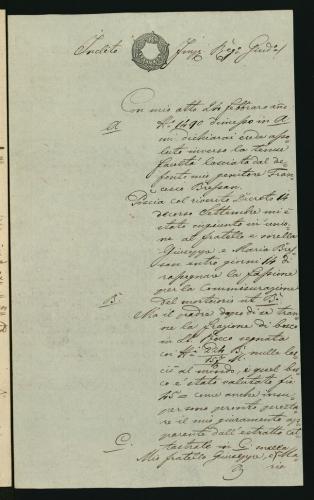 Inclito Imp: Regio Giudizio
Con mio atto 24 febbraro anno
N.° 1490 dimesso in A
A
mi dichiarai erede asso-
luto inverso la tenue
facoltà lasciata dal de-
fonto mio genitore Fran-
cesco Bressan.
Poscia col riverito Decreto 14
decorso Settembre mi è
stato ingiunto in unio-
ne al fratello e sorella
Giuseppe e Maria Bres-
san entro giorni 14 di
rassegnare la fassione
per la commisurazione
del mortuorio ut B.
B.
Ma il padre dopo di se tran-
ne la frazione di bosco
in S. Rocco segnata
con N.
nulla las-
ciò al mondo, e quel bos-
co è stato valutato fio
45 = come anche insu-
per sono pronto presta-
re il mio giuramento ap-
parente dall'estratto ca-
tastrale in C.
C.
Mio fratello Giuseppe, e Ma-
ria